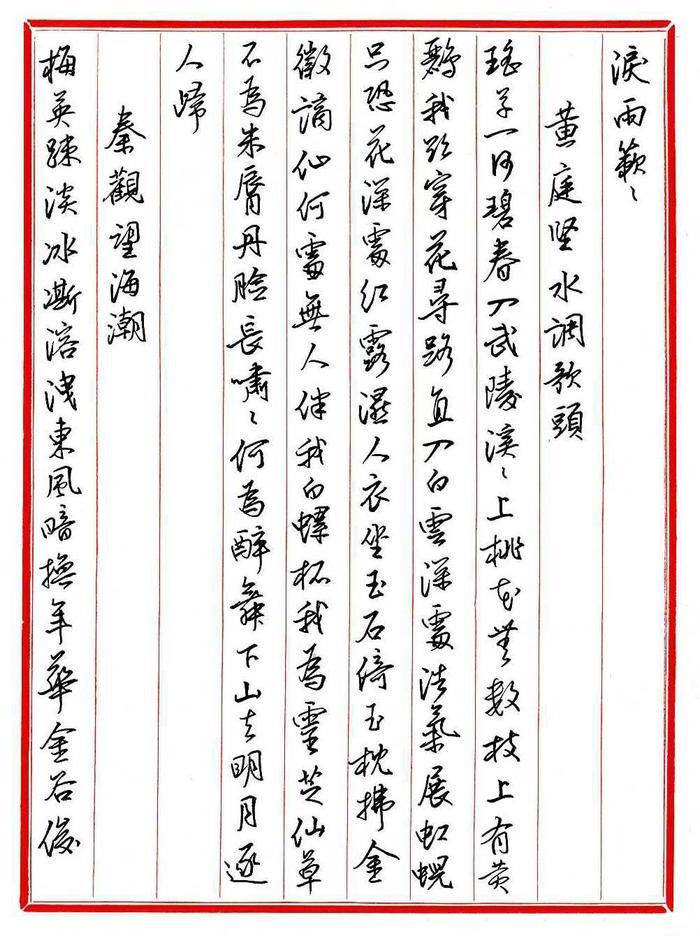 淚雨簌〻
黄庭坚水调歌頭
瑤草一何碧春入武陵溪〻上桃花無數枝上有黄
鸝我欲穿花尋路直入白雲深處浩氣展虹蜺
只恐花深處紅露濕人衣坐玉石倚玉枕拂金
徽謫仙何處無人伴我白螺杯我為靈芝仙草
不為朱脣丹臉長嘯〻何為醉舞下山去明月逐
人歸
秦觀望海潮
梅英疎淡冰澌溶洩東風暗換年華金谷俊